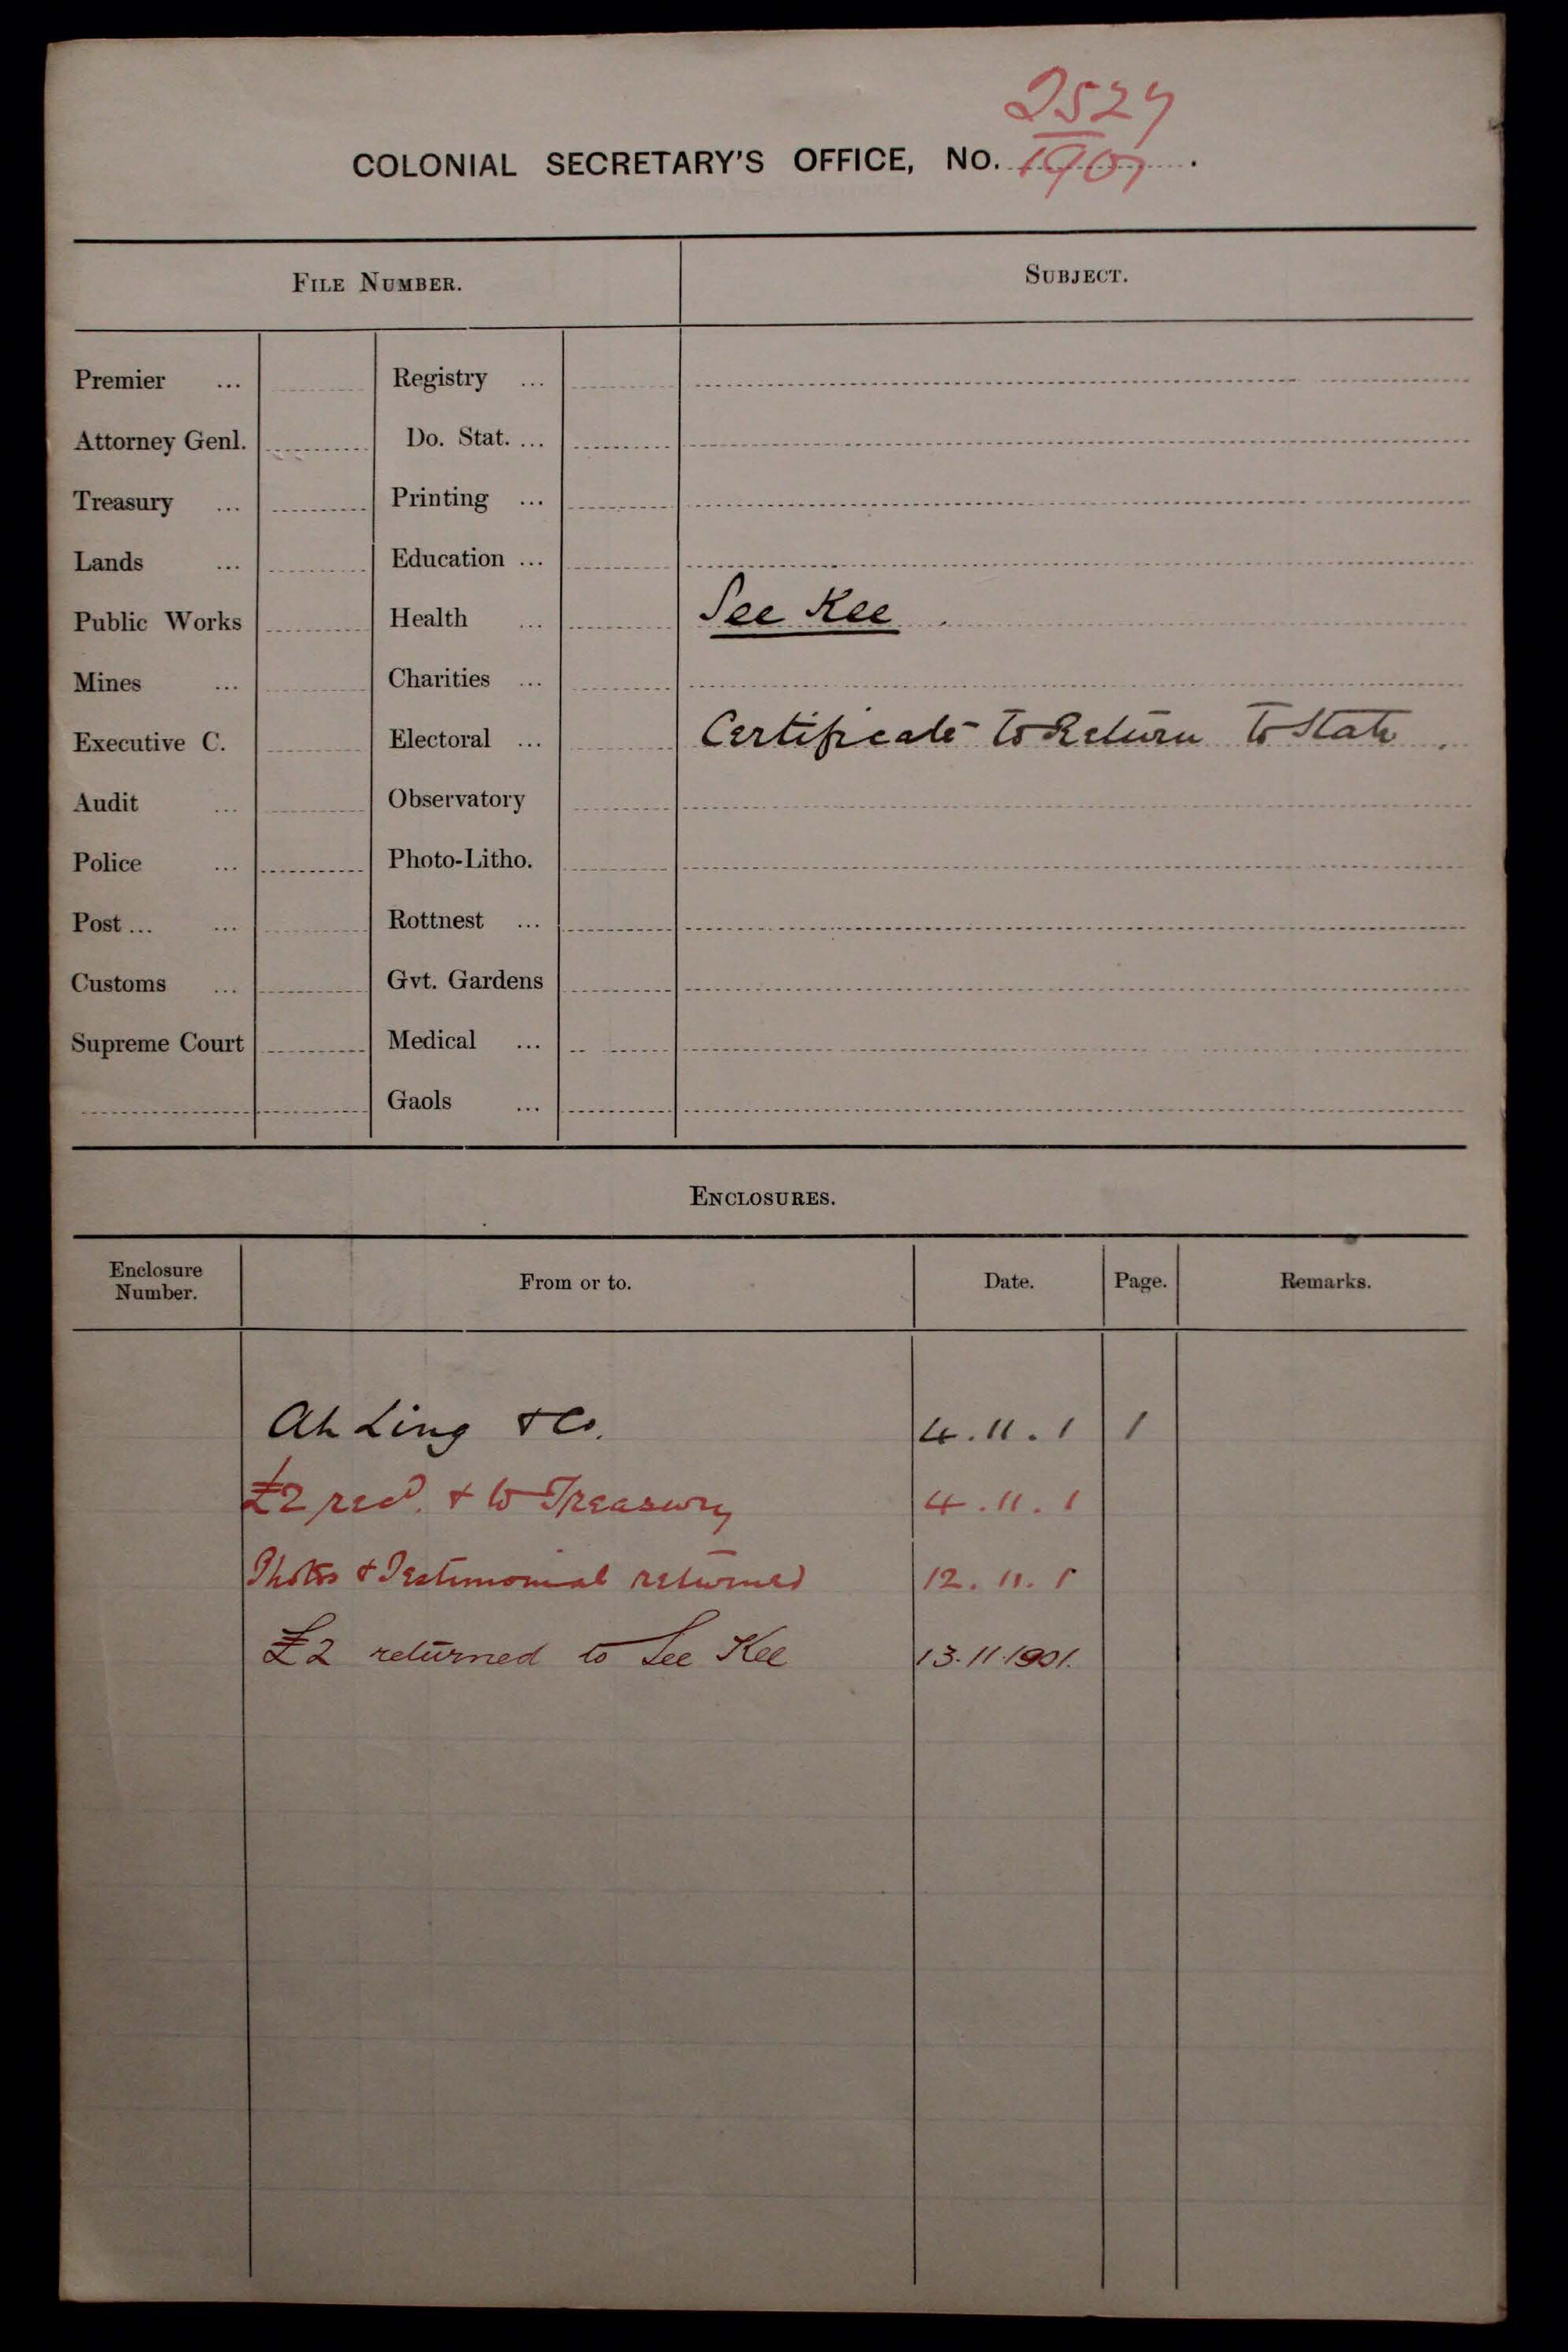 2527
COLONIAL SECRETARY'S OFFICE, NO. 1901.
FILE NUMBER. SUBJECT.
Premier ... Registry ...
Attorney Genl. Do. Stat. ...
Treasury ... Printing ...
Lands ... Education ...
Public Works Health ... See Kee
Mines ... Charities ...
Executive C. Electoral ... Certificate to Return to State
Audit ... Observatory
Police ... Photo-Litho.
Post ... ... Rottnest ...
Customs ... Gvt. Gardens
Supreme Court Medical ...
Gaols ...
ENCLOSURES.
Enclosure Number. From or to. Date. Page. Remarks.
Ah Ling & Co. 4.11.1 1
£2 recd. & to Treasury 4.11.1
Photos & Testimonial returned 12.11.1
£2 returned to See Kee 13.11.1901.